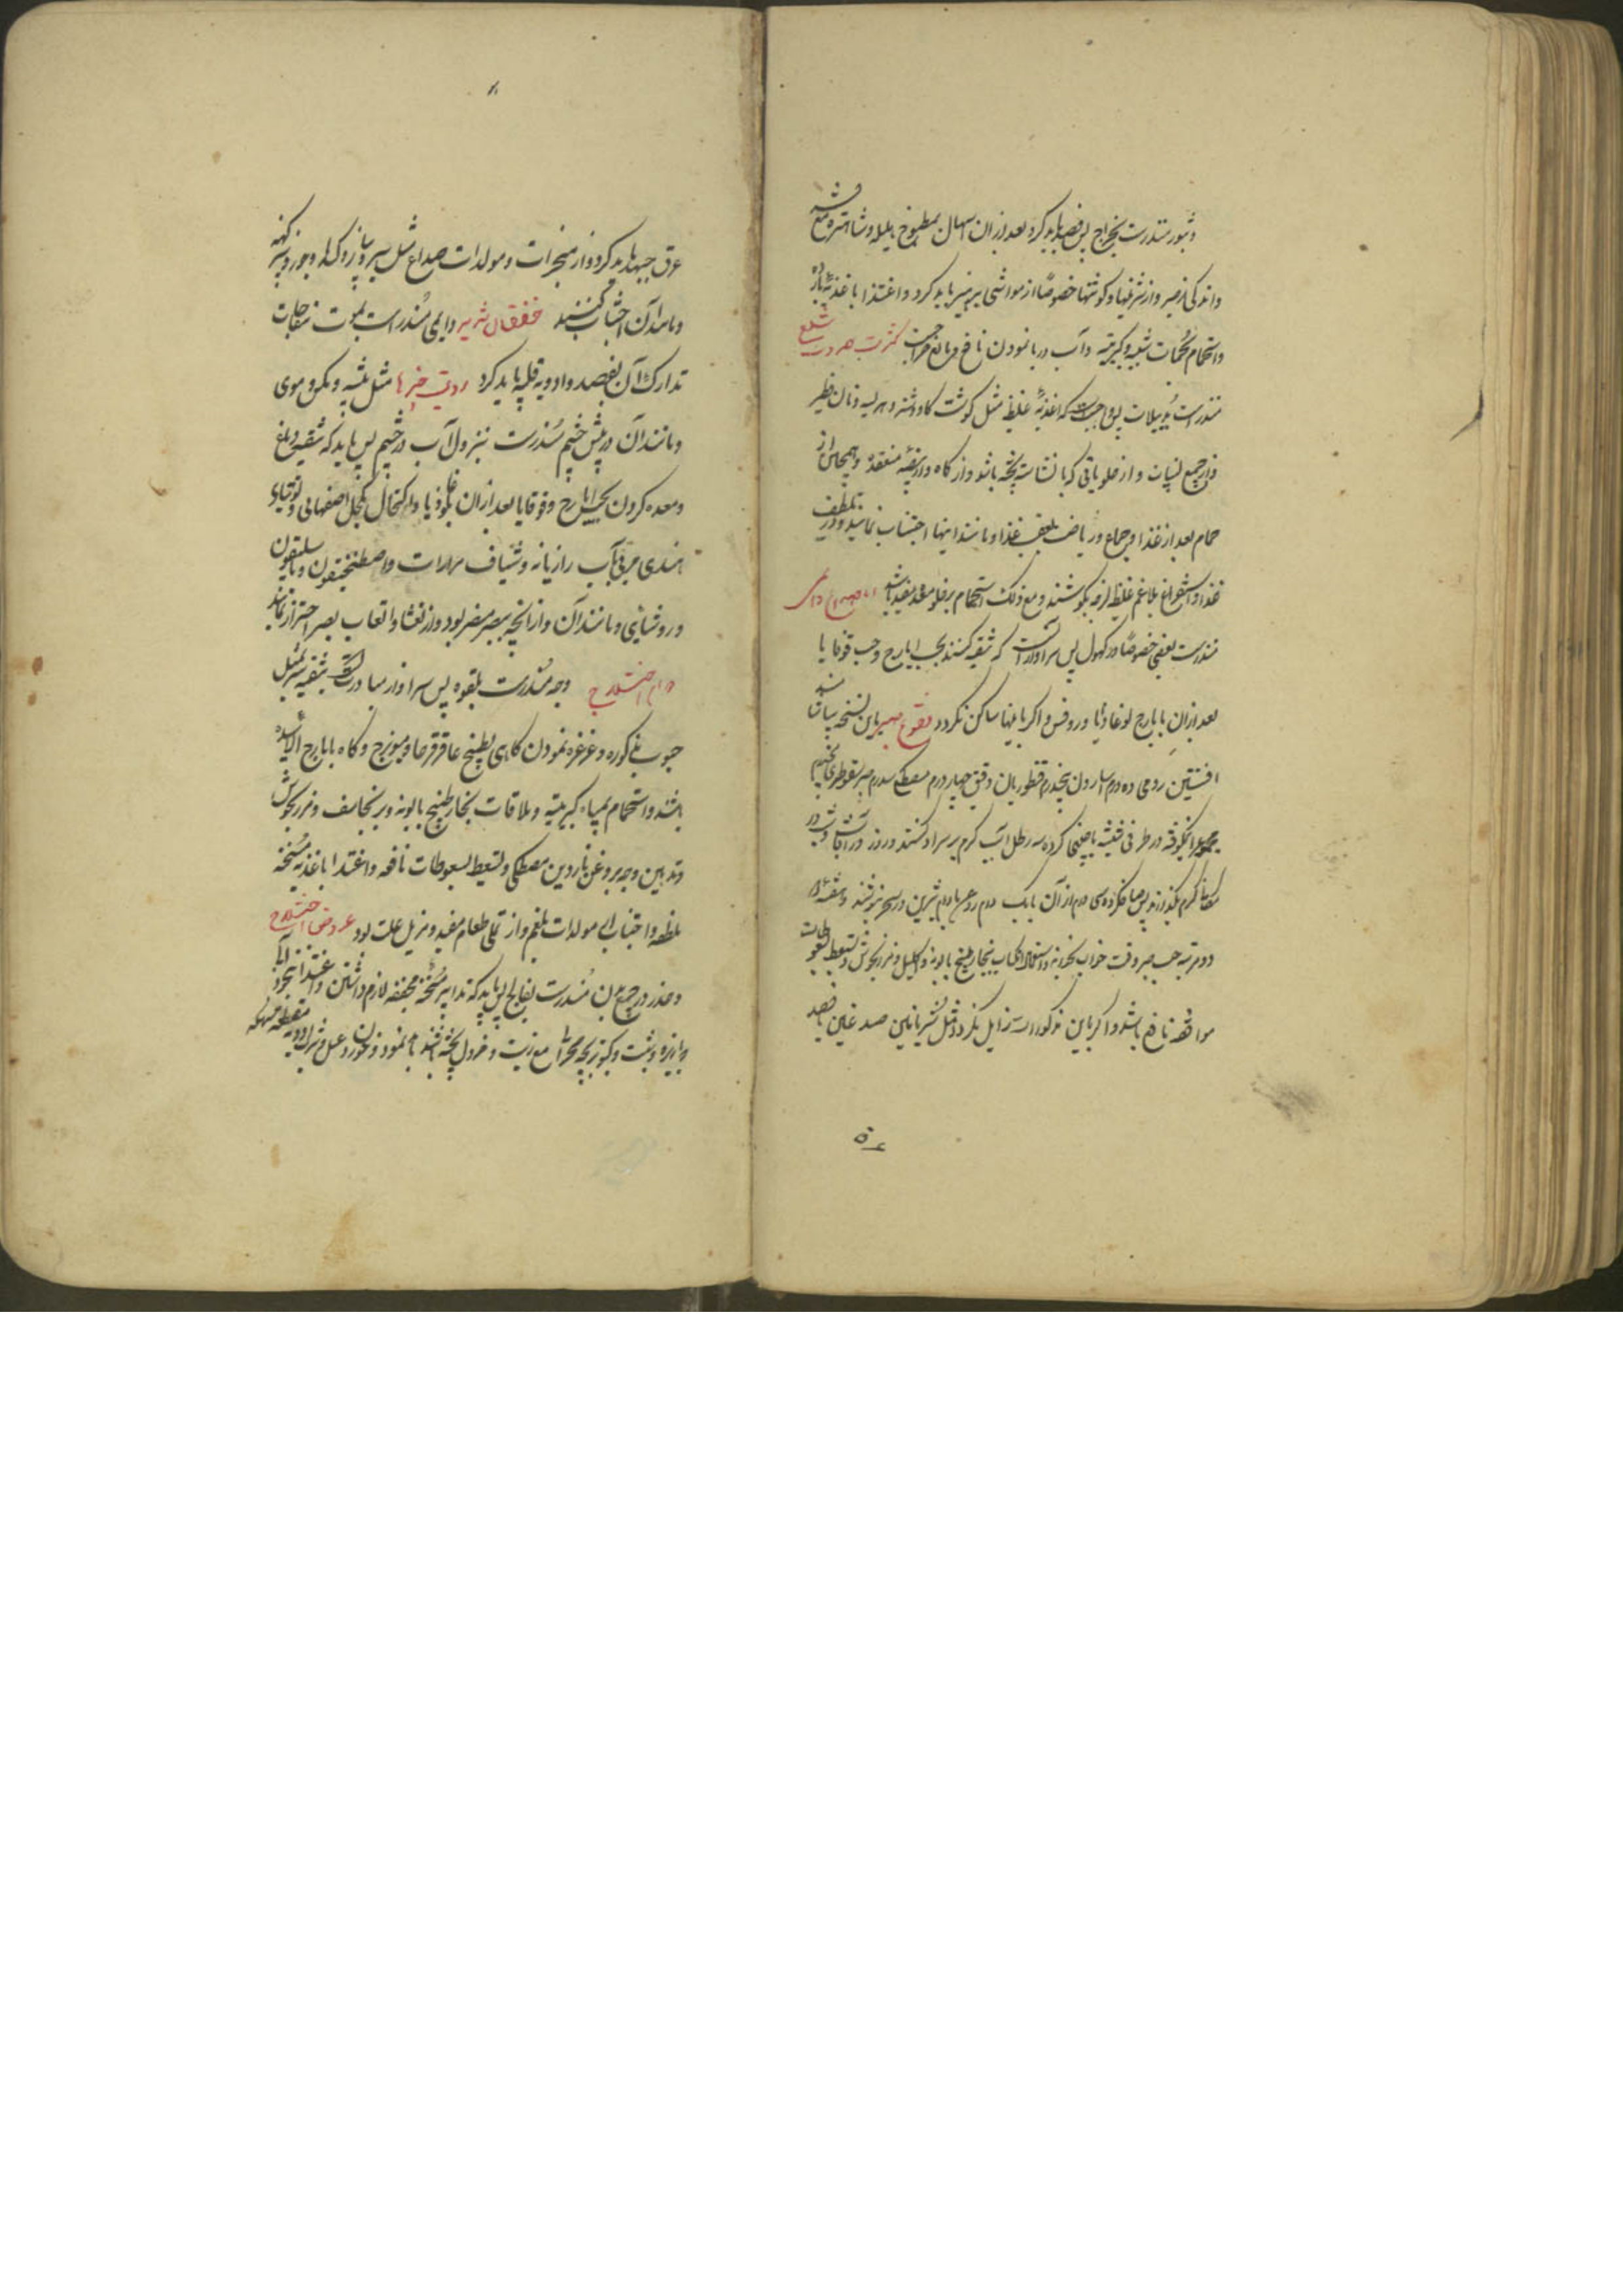 و بثور منذرست بخراج پس فصد باید کرد بعد ازان اسهال بمطبوخ هلیله و شاهتره مع
و اندکی از صبر و از شرینیها و کوشتها خصوصًا از مواشی پرهیز باید کرد و اغتذا باغذیهٔ بارده
و استحمام بحمات شبیه و کبریتیه و آب دریا نمودن نافع و مانع جراحت کثرت حدوث سلع
منذرست بدبیلات پس واجبست که اغذیهٔ غلیظ مثل کوشت کاو و شتر و هریسه و نان فطیر
و از جمیع لبنیات و از حلویاتی که با نشاسته پخته باشد و از کاه و از بیضهٔ منعقد و همچنان از
حمام بعد از غذا و جماع و ریاضت بعقب غذا و مانند اینها اجتناب نمایند و در تلطیف
غذا و استفراغ بلاغم غلیظ لزجه بکوشند و مع ذلک استحمام بر خلو معده مفید باشد اما صداع دائمی
منذرست بعمی خصوصًا در کهول پس سزاوار آنست که تنقیه کنند بحب ایارج و حب قوقایا
بعد ازان بایارج لوغاذیا و روفس و اکر باینها ساکن نکردد نقوع صبر باین نسخه بسازند
افسنتین رومی ده درم اسارون پنجدرم قنطوریان دقیق چهار درم مصطکی سه درم صبر سقوطری پنجدرم
مجموع را نیکوفته در ظرفی شیشه یا چینی کرده سه رطل آب کرم بر سر او کنند و روز در آفتاب و شب در
کرم بکذارند پس صاف کرده سی درم از آن با یک درم روغن بادام شیرین در سحر بنوشند و هفتهٔ در
دو مرتبه حب صبر وقت خواب بخورند و انکباب ببخار طبیخ بابونه و اکلیل و مرزنجوش و تسعط بسعوطات
موافقه نافع باشد و اکر باین مذکورات زایل نکردد مثل شریانین صدغین یا فصد
۵۴
عرق جبهه باید کرد و از مبخرات و مولدات صداع مثل سیر و پیاز و کراث و جوز و پنیر کهنه
و مانند آن اجتناب کنند خفقان شدید دایمی منذراست بموت مفاجات
تدارک آن بفصد و ادویه قلبیه باید کرد رویت چیزها مثل پشه و مکس و موی
و مانند آن در پیش چشم منذرست بنزول آب در چشم پس باید که تنقیه دماغ
و معده کردن بحب ایارج و قوقایا بعد ازان بلوغاذیا و اکتحال بکحل اصفهانی و توتیای
هندی مربی بآب رازیانه و شیاف مرارات و اصطفطیقون و باسلیقون
و روشنایی و مانند آن و از آنچه ببصر مضر بود و از تعشا و اتعاب بصر احتراز نمایند
دوام اختلاج وجه منذرست بلقوه پس سزاوار مبادرت بتنقیه سر بمثل
حبوب مذکوره و غرغره نمودن کاهی بطبیخ عاقرقرحا و مویزج و کاه بایارج
باشد و استحمام بمیاه کبریتیه و ملاقات بخار طبیخ بابونه و برنجاسف و مرزنجوش
و تدهین وجه بروغن ناردین و مصطکی و تسعط بسعوطات نافعه و اغتذا باغذیهٔ مسخنه
ملطفه و اجتناب از مولدات بلغم و از تملی طعام مفید و مزیل علت بود عروض اختلاج
و خدر در جمیع بدن منذرست بفالج پس باید که تدابیر مسخنه مجففه لازم داشتن و اغتذا بنخوداب
و زیره و شبت و کبوتر بچه صحرائی مع زیت و خردل پخته باشد نمودن و خوردن عسل و شراب ادویهٔ مقطعه مسهله